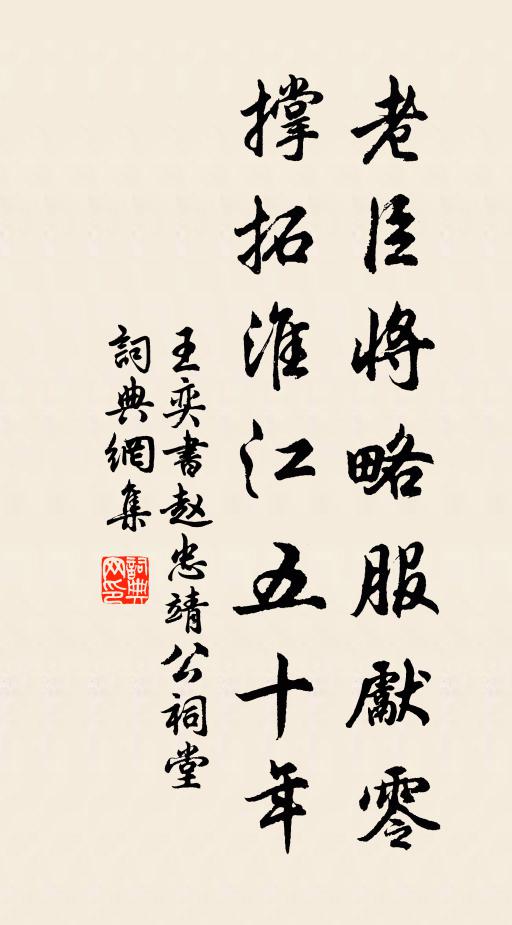 老臣將略服獻零
撑拓淮江五十年
王奕書赵忠靖公祠堂
詞典網集
詞典网印